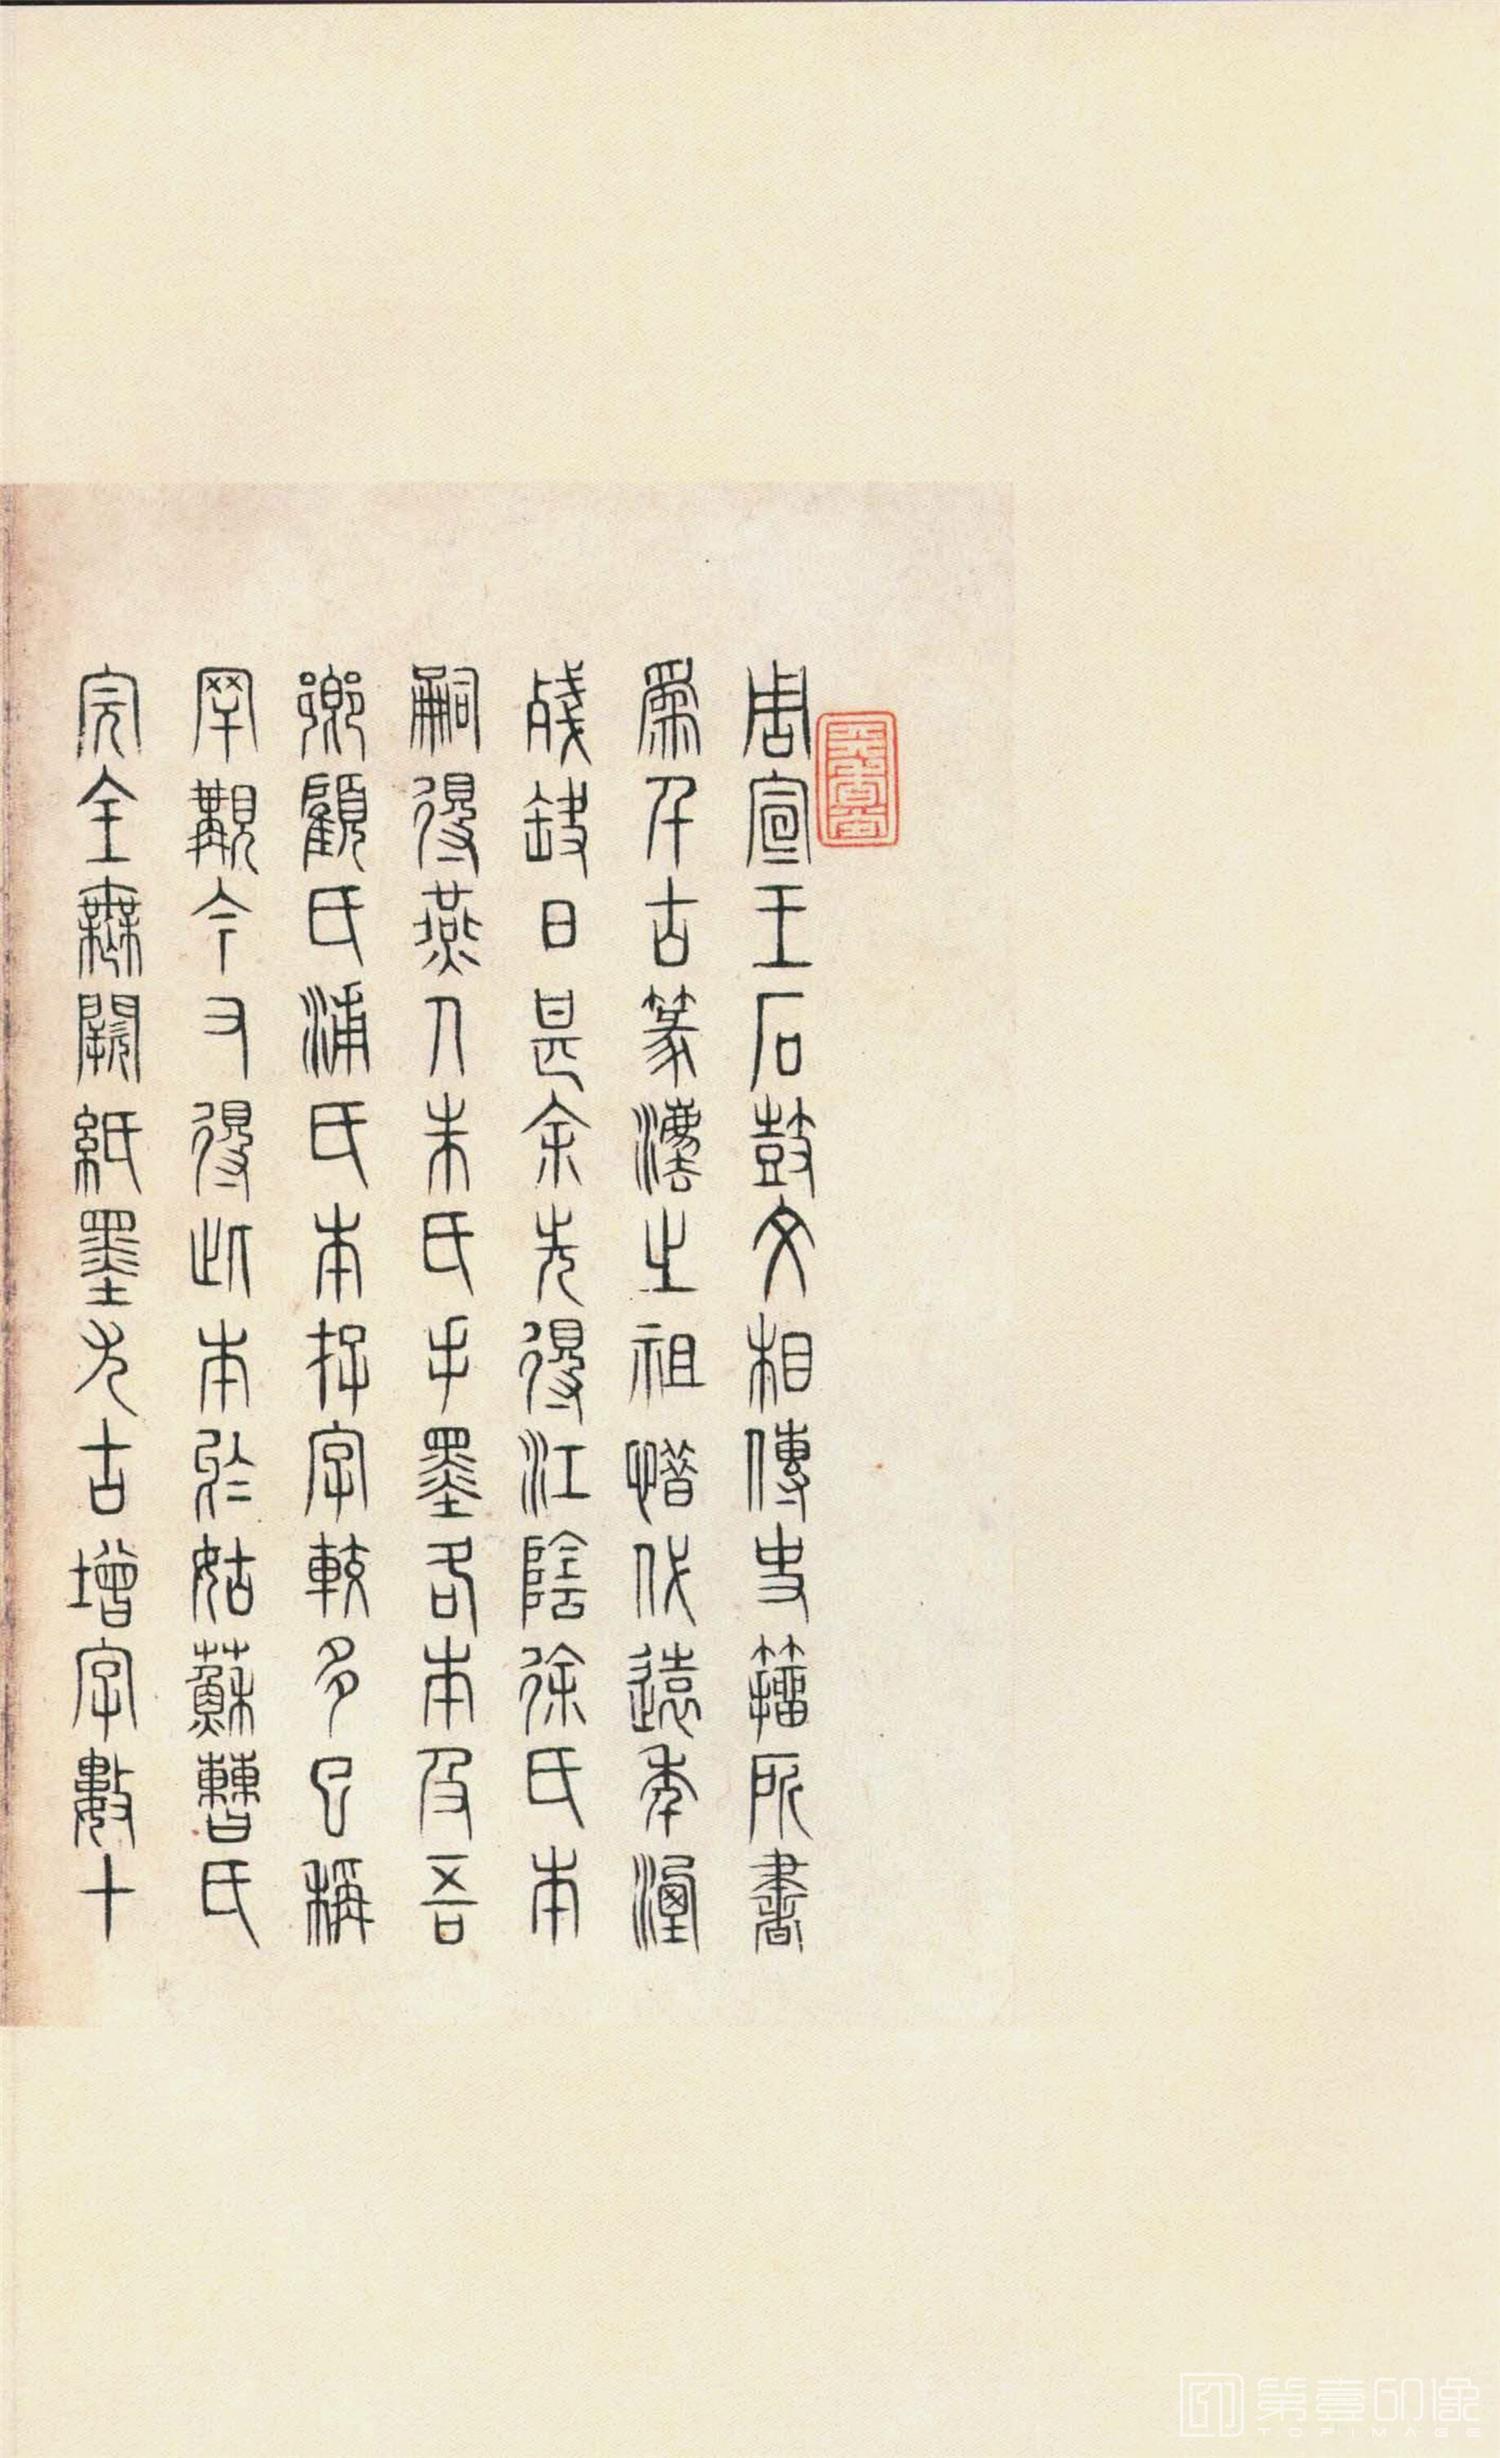 周宣王石鼓文相傳史籀所書
爲千古篆法之祖惜代遠年湮
殘缺日甚余先得江陰徐氏本
嗣得燕人朱氏手墨名本及吾
鄉顧氏浦氏本存字較多已稱
罕觀今又得此本於姑蘇曹氏
完全無闕紙墨尤古增字數十
第壹印像
TOPIMAGE